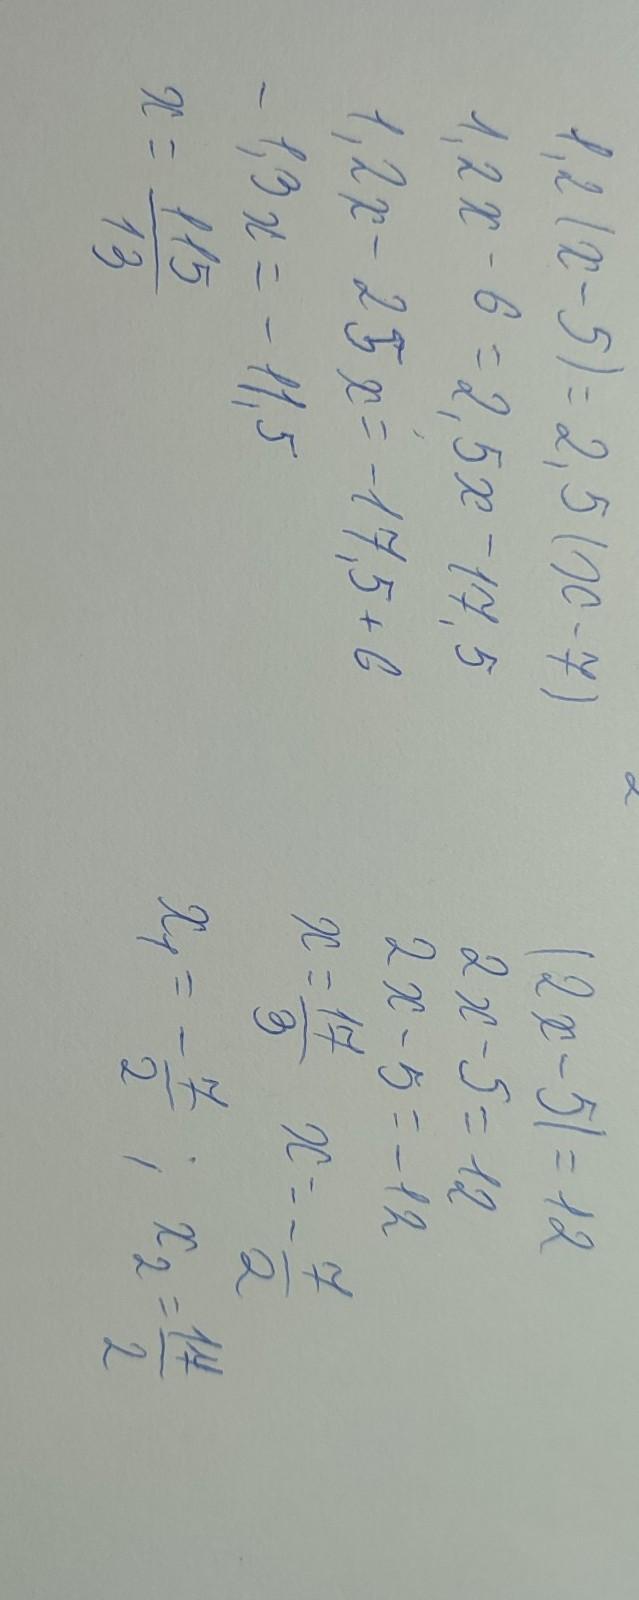 1,2(x-5)=2,5(x-7)
1,2x-6=2,5x-17,5
1,2x-25x=-17,5+6
-1,3x=-11,5
x=115/13
2
|2x-5|=12
2x-5=12
2x-5=-12
x=17/3 x=-7/2
x1=-7/2; x2=17/2